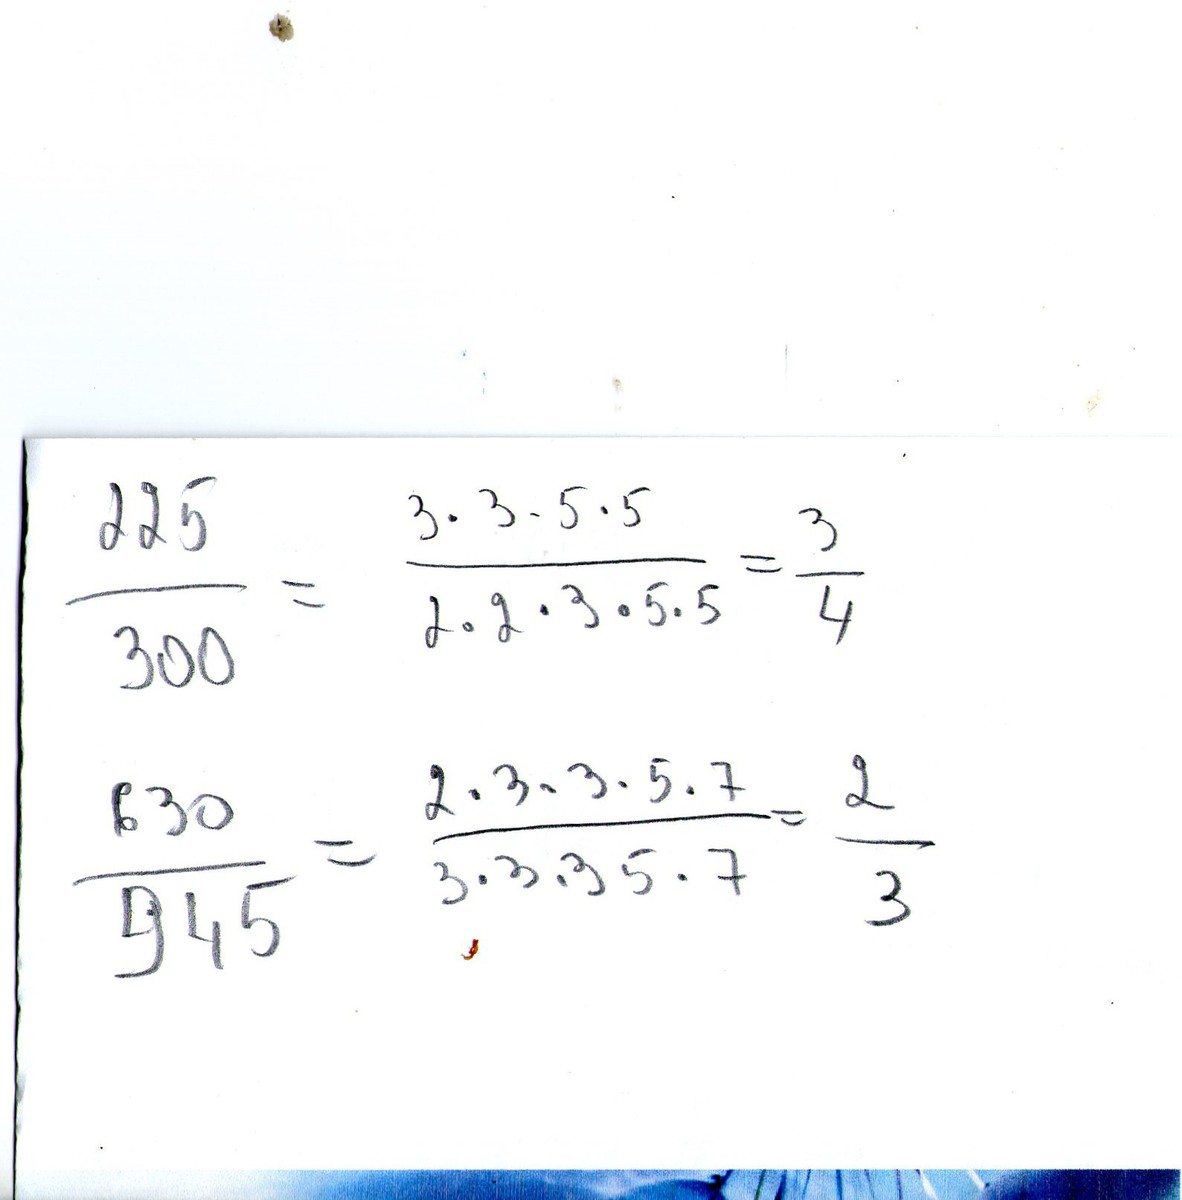 225/300 = 3·3·5·5/2·2·3·5·5 = 3/4
630/945 = 2·3·3·5·7/3·3·3 5·7 = 2/3